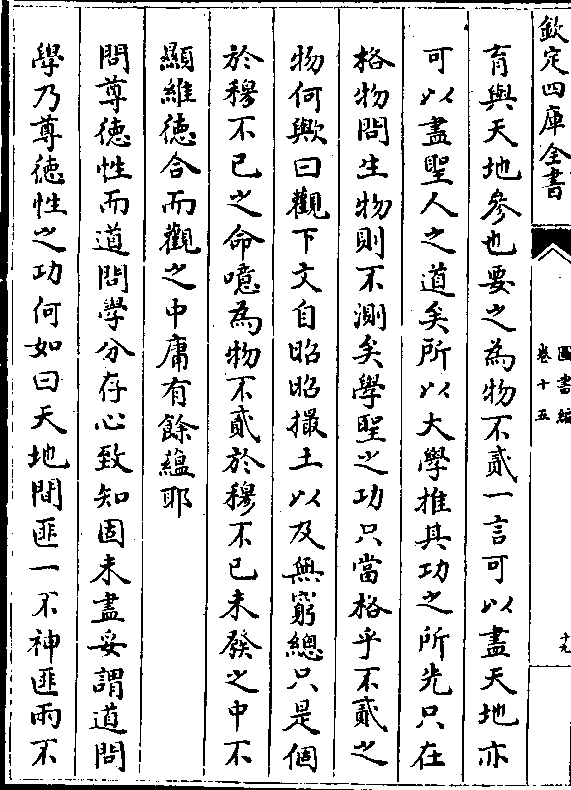 欽定四庫全書
圖書編
卷十五
十九
育與天地參也要之為物不貳一言可以盡天地亦
可以盡聖人之道矣所以大學推其功之所先只在
格物問生物則不測矣學聖之功只當格乎不貳之
物何歟曰觀下文自昭昭撮土以及無窮總只是個
於穆不已之命噫為物不貳於穆不已未發之中不
顯維德合而觀之中庸有餘蘊耶
問尊徳性而道問學分存心致知固未盡妥謂道問
學乃尊徳性之功何如曰天地間匪一不神匪兩不